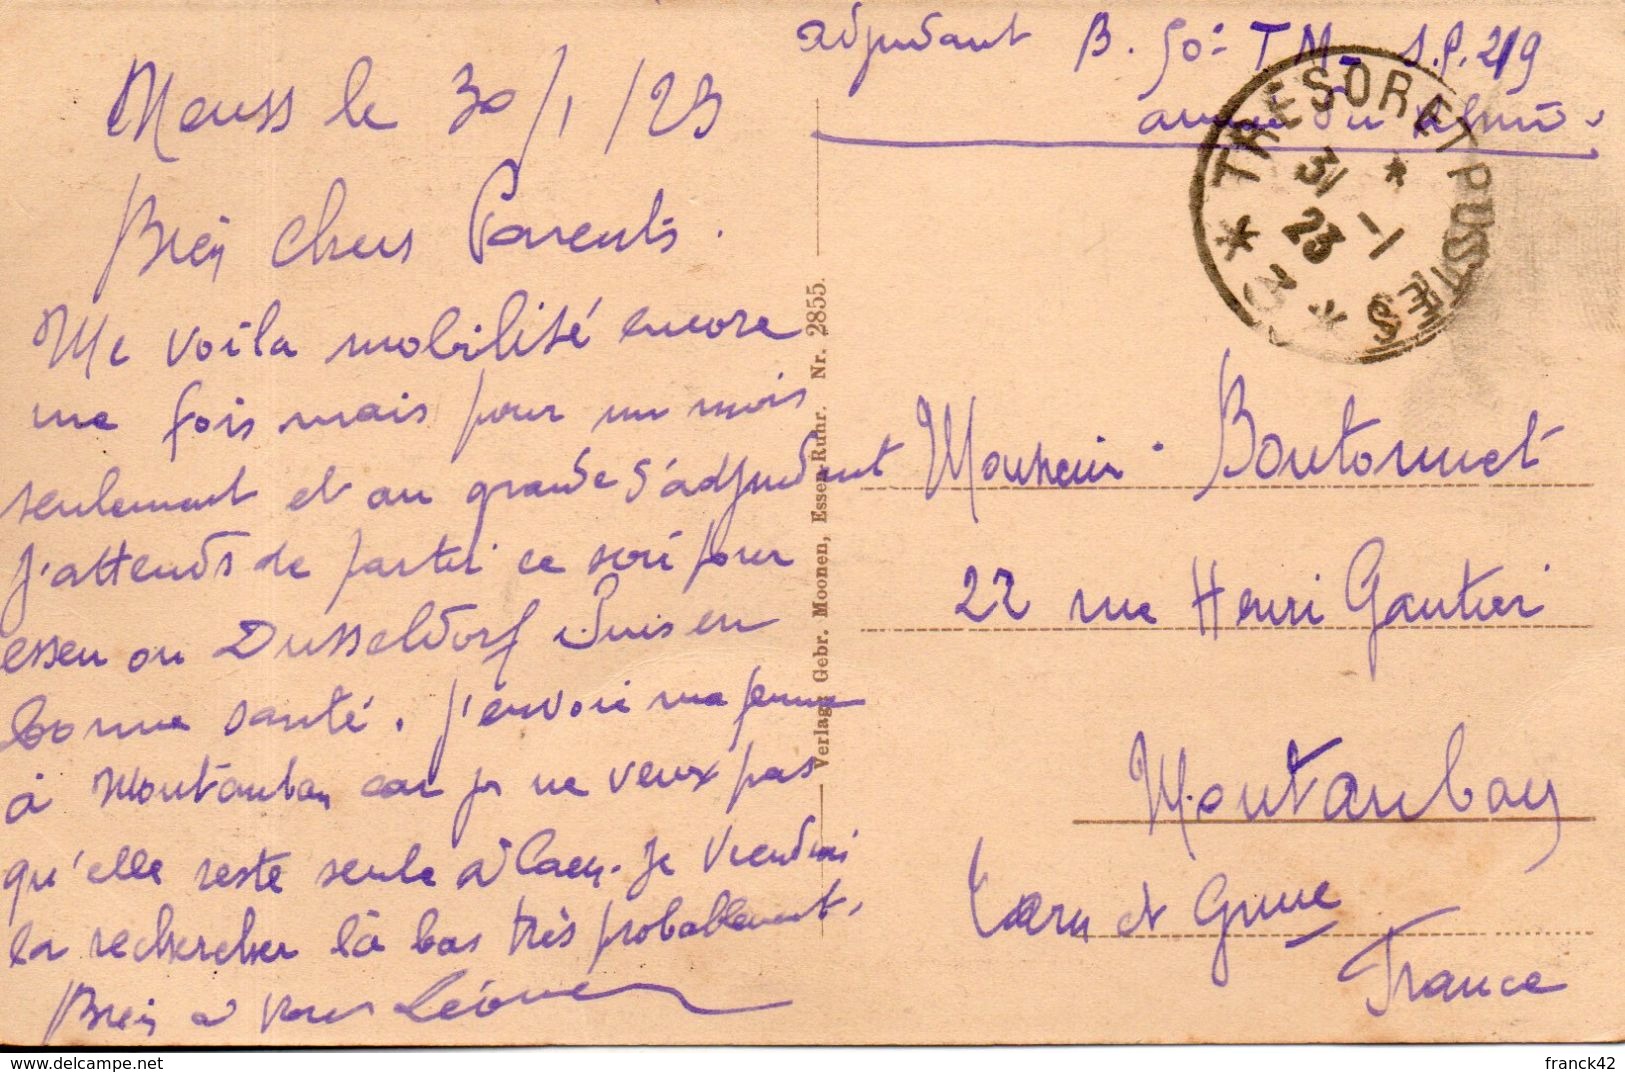 adjudant B. 50e T M S.P. 219
armée du Rhin.
Neuss le 30/1/23
Bien chers Parents.
Me voila mobilisé encore
une fois mais pour un mois
seulement et au grade d'adjudant
J'attends de partir ce soir pour
essen ou Dusseldorf Suis en
bonne santé. J'envoie ma femme
à Montauban car je ne veux pas
qu'elle reste seule à Caen. Je viendrai
la rechercher là bas très probablement.
Bien à vous Léonce
Verlag: Gebr. Moonen, Essen-Ruhr. Nr. 2855.
* TRESOR ET POSTES *
31 - 1
23
3
Monsieur Boutonnet
22 rue Henri Gautier
Montauban
Tarn et Gnne
France
delcampe.net
franck42